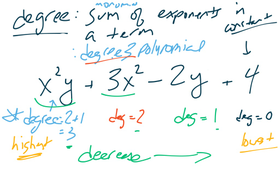 degree: Sum of exponents in
a term
monomial
constant
: degree 3 polynomial
x²y + 3x² - 2y + 4
degree = 2+1
= 3
deg = 2
deg = 1
deg = 0
highest
lowest
decrease